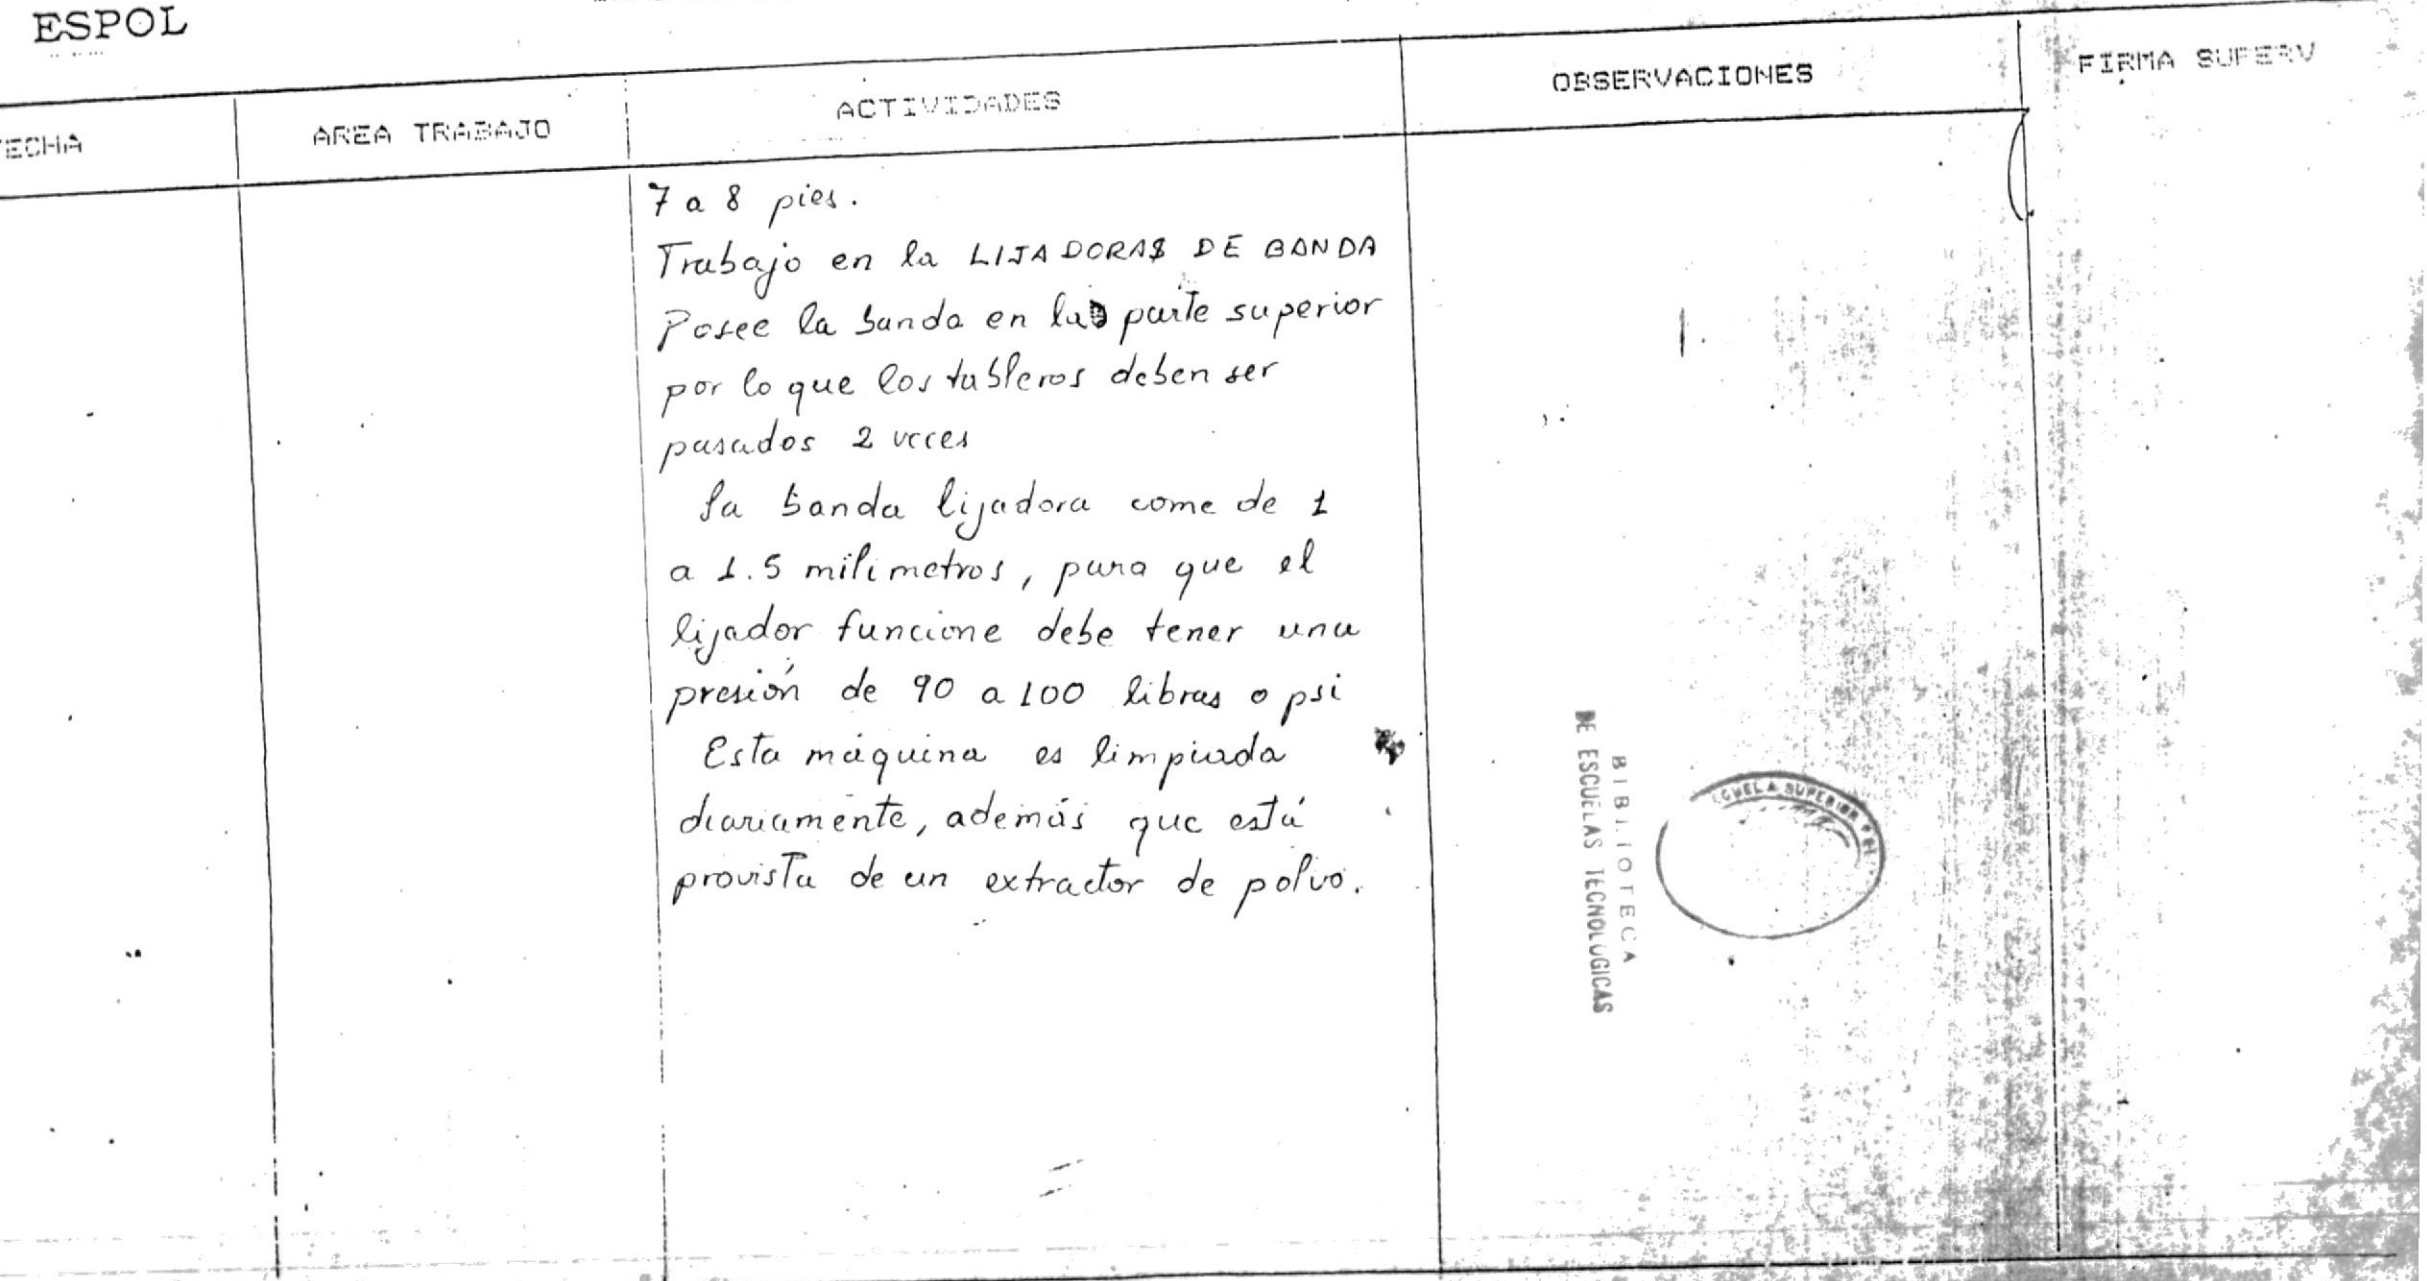 ESPOL
FECHA
AREA TRABAJO
ACTIVIDADES
OBSERVACIONES
FIRMA SUPERV
7 a 8 pies.
Trabajo en la LIJADORAS DE BANDA
Posee la banda en la parte superior
por lo que los tableros deben ser
pasados 2 veces
La banda lijadora come de 1
a 1.5 milimetros, para que el
lijador funcione debe tener una
presión de 90 a 100 libras o psi
Esta máquina es limpiada
diariamente, además que está
provista de un extractor de polvo.
BIBLIOTECA
DE ESCUELAS TECNOLOGICAS
SUPERIOR